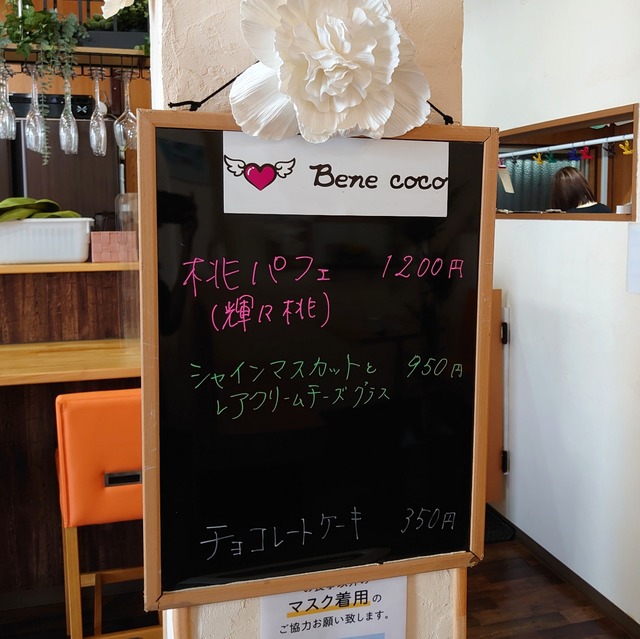 Bene coco
桃パフェ 1200円
(輝々桃)
シャインマスカットと 950円
レアクリームチーズグラス
チョコレートケーキ 350円
マスク着用の
ご協力お願い致します。